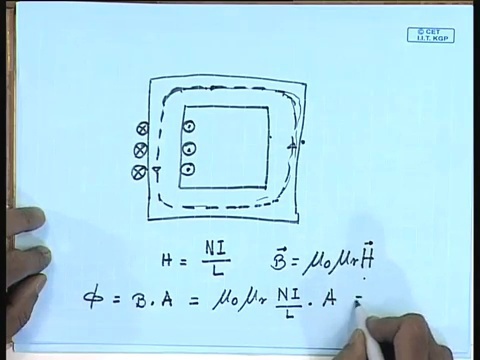 © CET
I.I.T. KGP
A
H = NI/L   B⃗ = μ₀μᵣH⃗
φ = B.A = μ₀μᵣ NI/L . A =